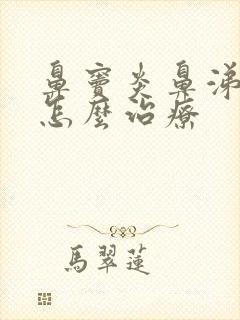 鼻竇炎鼻涕
怎麼治療
馬翠蓮